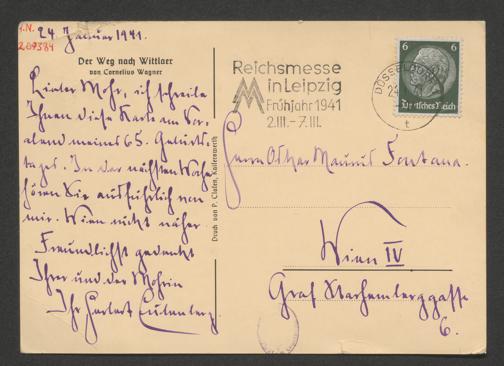 I.N.
209384
24. Januar 1941.
Der Weg nach Wittlaer
von Cornelius Wagner
Lieber Mohr, ich schreibe
Ihnen diese Karte am Vor-
abend meines 65. Geburts-
tages. In der nächsten Woche
hören Sie ausführlich von
mir. Wien nicht näher.
Freundlichst gedenkt
Ihrer und der Mohrin
Ihr Herbert Eulenberg
Druck von P. Claßen, Kaiserswerth
Reichsmesse
in Leipzig
Frühjahr 1941
2.III.-7.III.
DÜSSELDORF
t
6 6
Deutsches Reich
Herrn Oskar Maurus Fontana.
Wien IV
Graf Starhemberggasse
6.